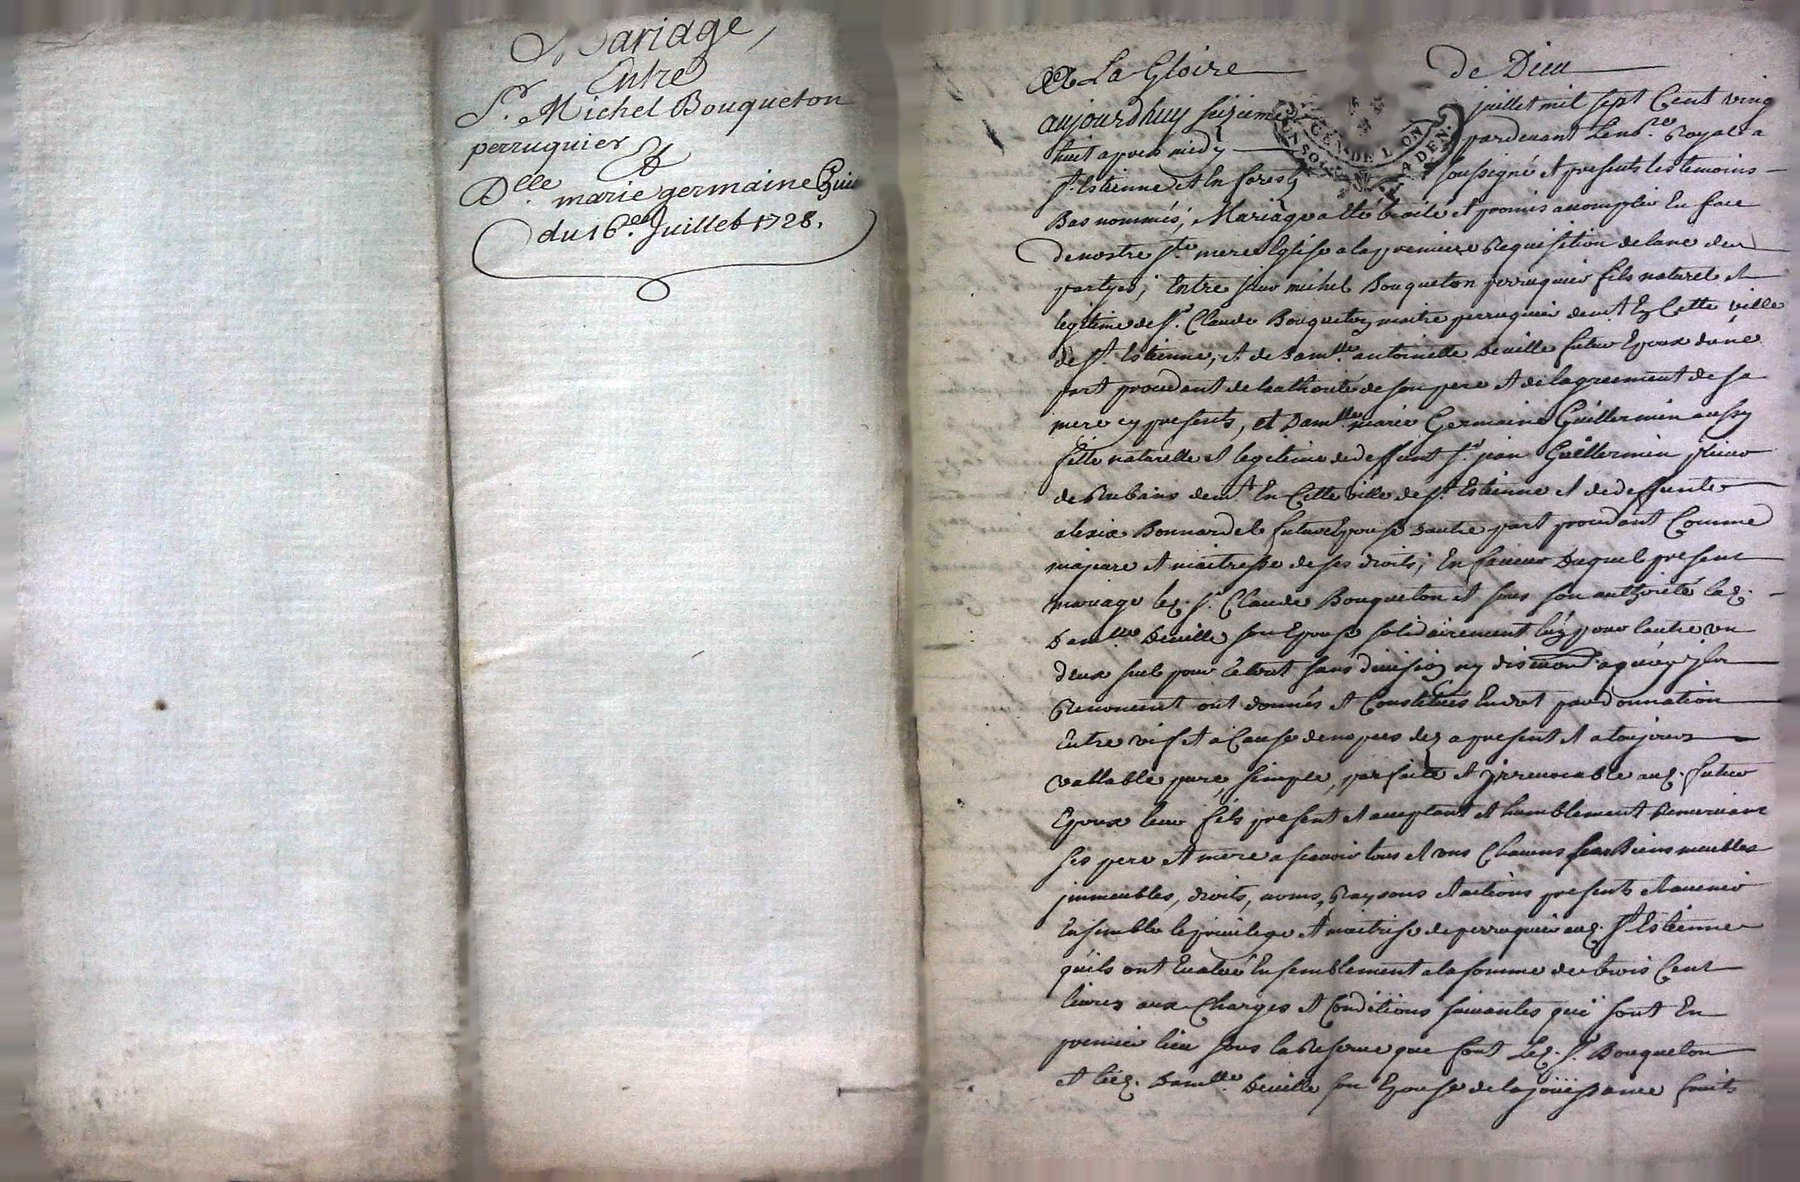 Mariage,
Entre
Sr. Michel Bouqueton
perruquier
&
Dlle. marie germaine Guil
du 16e. Juillet 1728.
A La Gloire de Dieu
aujourdhuy seizieme juillet mil sept Cent ving
huit apres midy pardevant Le nore. Royal a
St. Estienne et En forest soussigné et presents les temoins
Bas nommés; Mariage a été traité et promis accomplir En face
de nostre Ste. mere Eglise a la premiere Requisition de lune des
partyes; Entre sieur michel Bouqueton perruquier fils naturel et
legitime de Sr. Claude Bouqueton maitre perruquier demt. En Cette ville
de St. Estienne, et de damlle. antoinette Deville futur Epoux dune
part procedant de lauthorité de son pere et de lagrement de sa
mere cy presents, et Damlle. marie Germaine Guillermin aussy
fille naturelle et legitime de deffunt Sr. jean Guillermin
de Rubans demt. En Cette ville de St. Estienne et de deffunte
alexix Bonnardel future Epouse dautre part procedant Comme
majeure et maitresse de ses droits; En faveur Duquel present
mariage led. Sr. Claude Bouqueton et sous son authorité lad.
Damlle. Deville son Epouse solidairement lun pour lautre un
deux seul pour le tout sans division ny dis a quoy ils
Renoncent ont donnés et Constitués En dot par donnation
Entre vifs et a Cause de nopces dez a present et a toujours
vallable pure, simple, parfaite et jrrevocable aud. futur
Epoux leur fils present et acceptant et humblement Remerciant
ses pere et mere a scavoir tous et uns Chacuns leurs Biens meubles
jmmeubles, droits, noms, Raysons et actions presents et avenir
Ensemble le privilege et maitrise de perruquier aud. St. Estienne
quils ont Evalué Ensemblement a la somme de trois Cent
livres aux Charges et Conditions suivantes qui sont En
premier lieu sous la Reserve que font Led. Sr. Bouqueton
et lad. Damlle. Deville son Epouse de la joüissance fruits